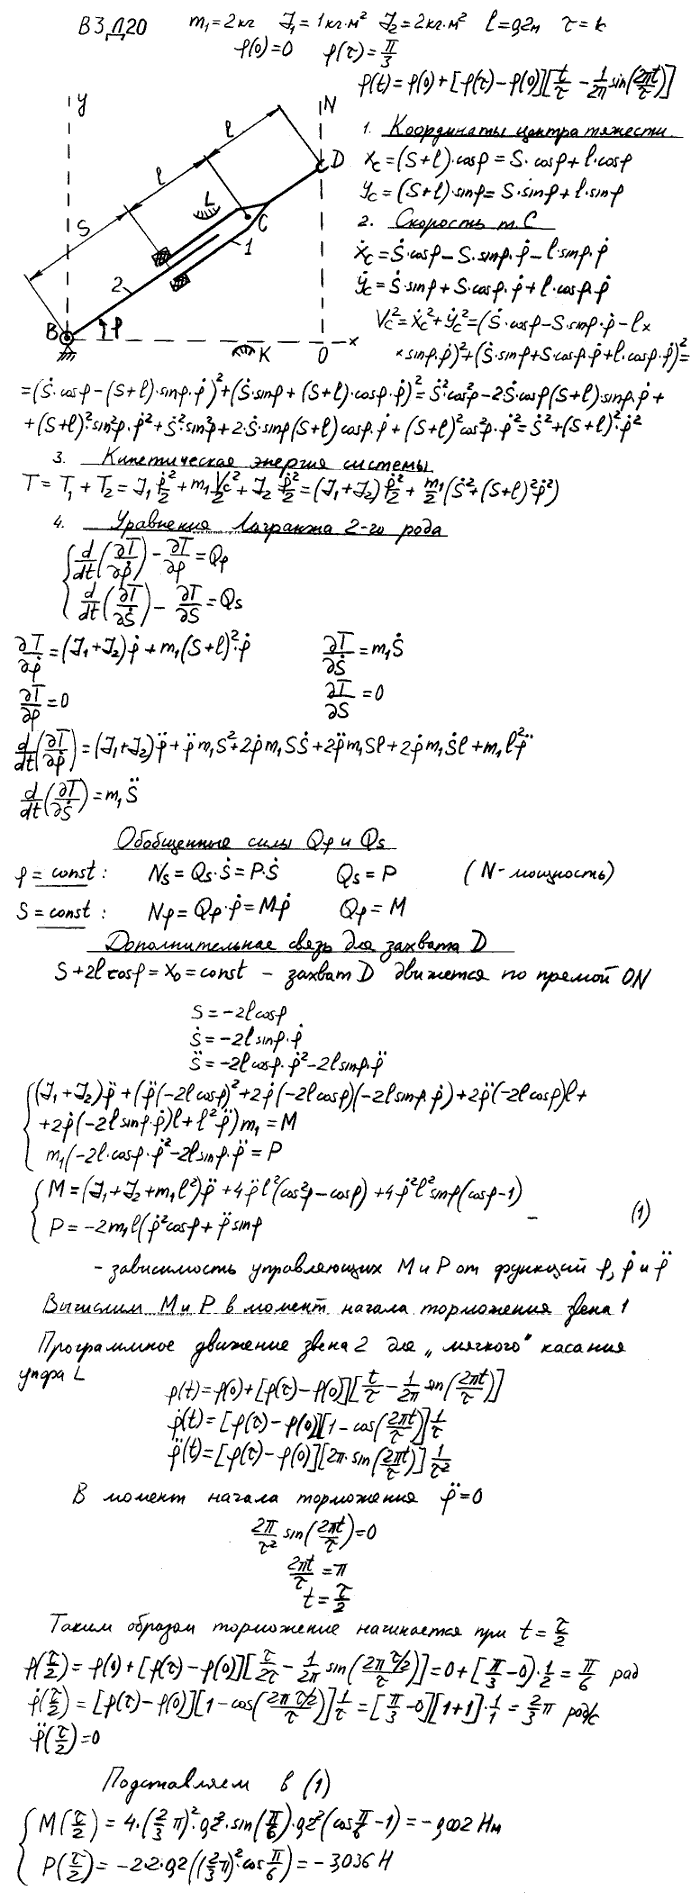 ВЗД20 m₁=2кг J₁=1кг·м² J₂=2кг·м² l=0,2м τ=1c
φ(0)=0 φ(τ)=π/3
φ(t)=φ(0)+[φ(τ)-φ(0)][t/τ - 1/2π sin(2πt/τ)]
y N
l
l L D
S C
2 1
B φ K O x
1. Координаты центра тяжести.
Xc=(S+l)·cosφ=S·cosφ+l·cosφ
Yc=(S+l)·sinφ=S·sinφ+l·sinφ
2. Скорость т.С
Ẋc=Ṡ·cosφ-S·sinφ·φ̇-l·sinφ·φ̇
Ẏc=Ṡ·sinφ+S·cosφ·φ̇+l·cosφ·φ̇
Vc²=Ẋc²+Ẏc²=(Ṡ·cosφ-S·sinφ·φ̇-l×
×sinφ·φ̇)²+(Ṡ·sinφ+S·cosφ·φ̇+l·cosφ·φ̇)²=
=(Ṡ·cosφ-(S+l)·sinφ·φ̇)²+(Ṡ·sinφ+(S+l)·cosφ·φ̇)²=Ṡ²·cos²φ-2Ṡ·cosφ(S+l)·sinφ·φ̇+
+(S+l)²·sin²φ·φ̇²+Ṡ²·sin²φ+2·Ṡ·sinφ(S+l)cosφ·φ̇+(S+l)²cos²φ·φ̇²=Ṡ²+(S+l)²·φ̇²
3. Кинетическая энергия системы
T=T₁+T₂=J₁φ̇²/2+m₁Vc²/2+J₂φ̇²/2=(J₁+J₂)φ̇²/2+m₁/2(Ṡ²+(S+l)²φ̇²)
4. Уравнения Лагранжа 2-го рода
{d/dt(∂T/∂φ̇)-∂T/∂φ=Qφ
{d/dt(∂T/∂Ṡ)-∂T/∂S=Qs
∂T/∂φ̇=(J₁+J₂)φ̇+m₁(S+l)²·φ̇ ∂T/∂Ṡ=m₁Ṡ
∂T/∂φ=0 ∂T/∂S=0
d/dt(∂T/∂φ̇)=(J₁+J₂)φ̈+φ̈m₁S²+2φ̇m₁SṠ+2φ̈m₁Sl+2φ̇m₁Ṡl+m₁l²φ̈
d/dt(∂T/∂Ṡ)=m₁S̈
Обобщенные силы Qφ и Qs
φ=const: Ns=Qs·Ṡ=P·Ṡ Qs=P (N-мощность)
S=const: Nφ=Qφ·φ̇=Mφ̇ Qφ=M
Дополнительная связь для захвата D
S+2l cosφ=X₀=const – захват D движется по прямой ON
S=-2lcosφ
Ṡ=-2lsinφ·φ̇
S̈=-2lcosφ·φ̇²-2lsinφ·φ̈
{(J₁+J₂)φ̈+(φ̈(-2lcosφ)²+2φ̇(-2lcosφ)(-2lsinφ·φ̇)+2φ̈(-2lcosφ)l+
+2φ̇(-2lsinφ·φ̇)l+l²φ̈)m₁=M
m₁(-2l·cosφ·φ̇²-2lsinφ·φ̈=P
{M=(J₁+J₂+m₁l²)φ̈+4φ̈l²(cos²φ-cosφ)+4φ̇²l²sinφ(cosφ-1)
{P=-2m₁l(φ̇²cosφ+φ̈sinφ – (1)
- зависимость управляющих М и Р от функций φ, φ̇ и φ̈
Вычислим М и Р в момент начала торможения звена 1
Программное движение звена 2 для „мягкого" касания
упора L
φ(t)=φ(0)+[φ(τ)-φ(0)][t/τ-1/2π sin(2πt/τ)]
φ̇(t)=[φ(τ)-φ(0)][1-cos(2πt/τ)]1/τ
φ̈(t)=[φ(τ)-φ(0)][2π·sin(2πt/τ)]1/τ²
В момент начала торможения φ̈=0
2π/τ² sin(2πt/τ)=0
2πt/τ=π
t=τ/2
Таким образом торможение начинается при t=τ/2
φ(τ/2)=φ(0)+[φ(τ)-φ(0)][τ/2τ-1/2π sin(2πτ/2/τ)]=0+[π/3-0]·1/2=π/6 рад
φ̇(τ/2)=[φ(τ)-φ(0)][1-cos(2πτ/2/τ)]1/τ=[π/3-0][1+1]·1/1=2/3π рад/с
φ̈(τ/2)=0
Подставляем в (1)
{M(τ/2)=4·(2/3π)²·0,2²·sin(π/6)·0,2²(cosπ/6-1)=-0,002 Нм
{P(τ/2)=-2·2·0,2((2/3π)²·cosπ/6)=-3,036 Н